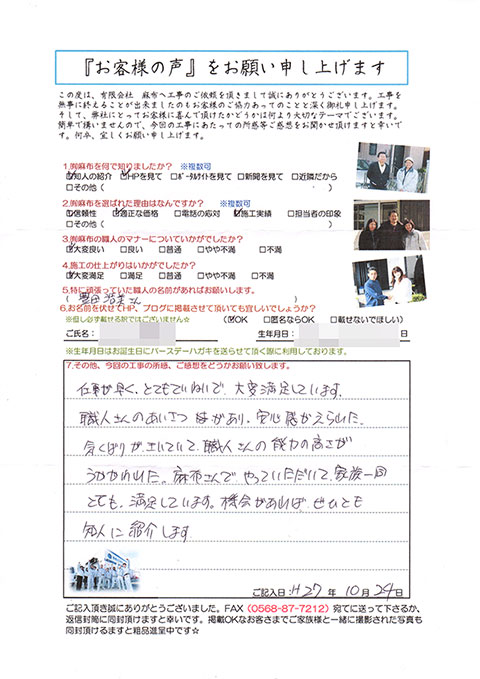 『お客様の声』をお願い申し上げます
この度は、有限会社 麻布へ工事のご依頼を頂きまして誠にありがとうございます。工事を
無事に終えることが出来ましたのもお客様のご協力あってのことと深く御礼申し上げます。
そして、弊社にとってお客様に喜んで頂けたかどうかは何より大切なテーマでございます。
簡単で構いませんので、今回の工事にあたっての所感等ご感想をお聞かせ頂けますと幸いで
す。何卒、宜しくお願い申し上げます。
1.㈲麻布を何で知りましたか? ※複数可
☑知人の紹介 ☑HPを見て □ポータルサイトを見て □新聞を見て □近隣だから
□その他( )
2.㈲麻布を選ばれた理由はなんですか? ※複数可
☑信頼性 ☑適正な価格 □電話の応対 ☑施工実績 □担当者の印象
□その他( )
3.㈲麻布の職人のマナーについていかがでしたか?
☑大変良い □良い □普通 □やや不満 □不満
4.施工の仕上がりはいかがでしたか?
☑大変満足 □満足 □普通 □やや不満 □不満
5.特に頑張っていた職人の名前があればお願いします。
( さん )
6.お名前を伏せてHP、ブログに掲載させて頂いても宜しいでしょうか?
※但し必ず載せる訳ではございません☆ (☑OK □匿名ならOK □載せないでほしい)
ご氏名: 生年月日: 日
※生年月日はお誕生日にバースデーハガキを送らせて頂く際に利用しております。
7.その他、今回の工事の所感、ご感想をどうかお願い致します。
仕事が早く、とてもていねいで、大変満足しています。
職人さんのあいさつ はがあり、安心感がえられた。
気くばりが、エいていて、職人さんの能力の高さが
うかがわれた。麻布さんで、やっていただいて、家族一同
とても、満足しています。機会があれば ぜひとも
知人に紹介します
ご記入日:H27年10月24日
ご記入頂き誠にありがとうございました。FAX(0568-87-7212)宛てに送って下さるか、
返信封筒に同封頂けますと幸いです。掲載OKなお客さまでご家族様と一緒に撮影された写真も
同封頂けるますと粗品進呈中です☆